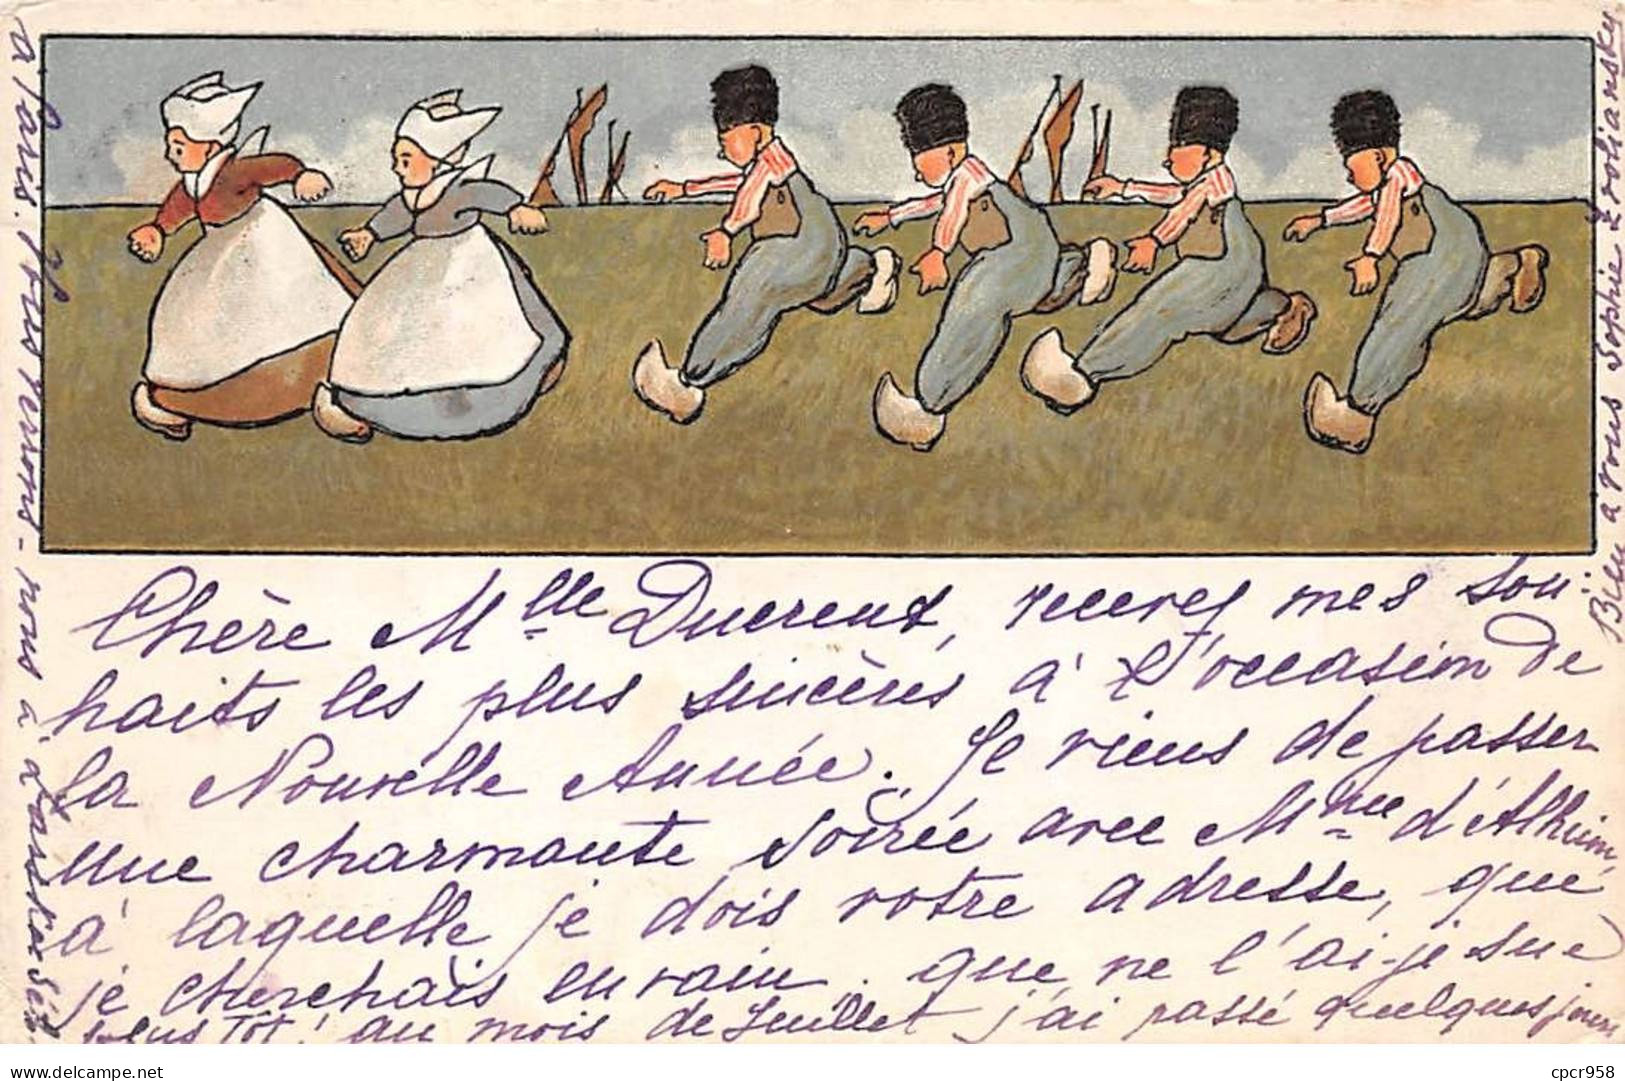 Chère Mlle Ducreux, recevez mes sou-
haits les plus sincères à l'occasion de
la Nouvelle Année. Je viens de passer
une charmante soirée avec Mme d'Alheim,
à laquelle je dois votre adresse, que
je cherchais en vain. que ne l'ai-je sue
plus tôt! au mois de Juillet j'ai passé quelques jours
à Paris. Viendrez-vous à
Bien à vous Sophie
delcampe.net
cpcr958